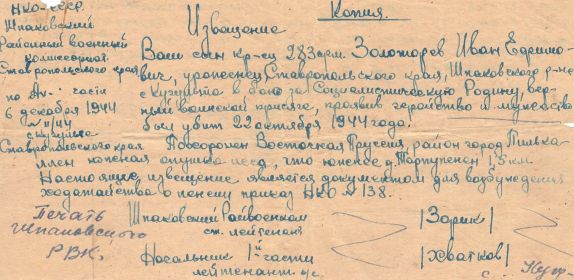 НКО-СССР.
Шпаковский
Районный военный
комиссариат
Ставропольского края
по части
6 декабря 1944
N 11/44
Ставропольского края
Копия.
Извещение
Ваш сын кр-ец 283 арм. Золотарев Иван Ефимо-
вич, уроженец Ставропольского края, Шпаковского р-на
в бою за Социалистическую Родину, вер-
ный воинской присяге, проявив геройство и мужество
был убит 22 октября 1944 года.
Похоронен Восточная Пруссия, район город Пилька-
ллен опушка леса, что южнее д. 1,5 км.
Настоящие извещение является документом для возбуждения
ходатайства о пенсии приказ НКО N 138.
Печать
Шпаковского
РВК.
Шпаковский Райвоенком
ст. лейтенант
/Зорик/
Начальник 1й части
лейтенант
/Хватков/